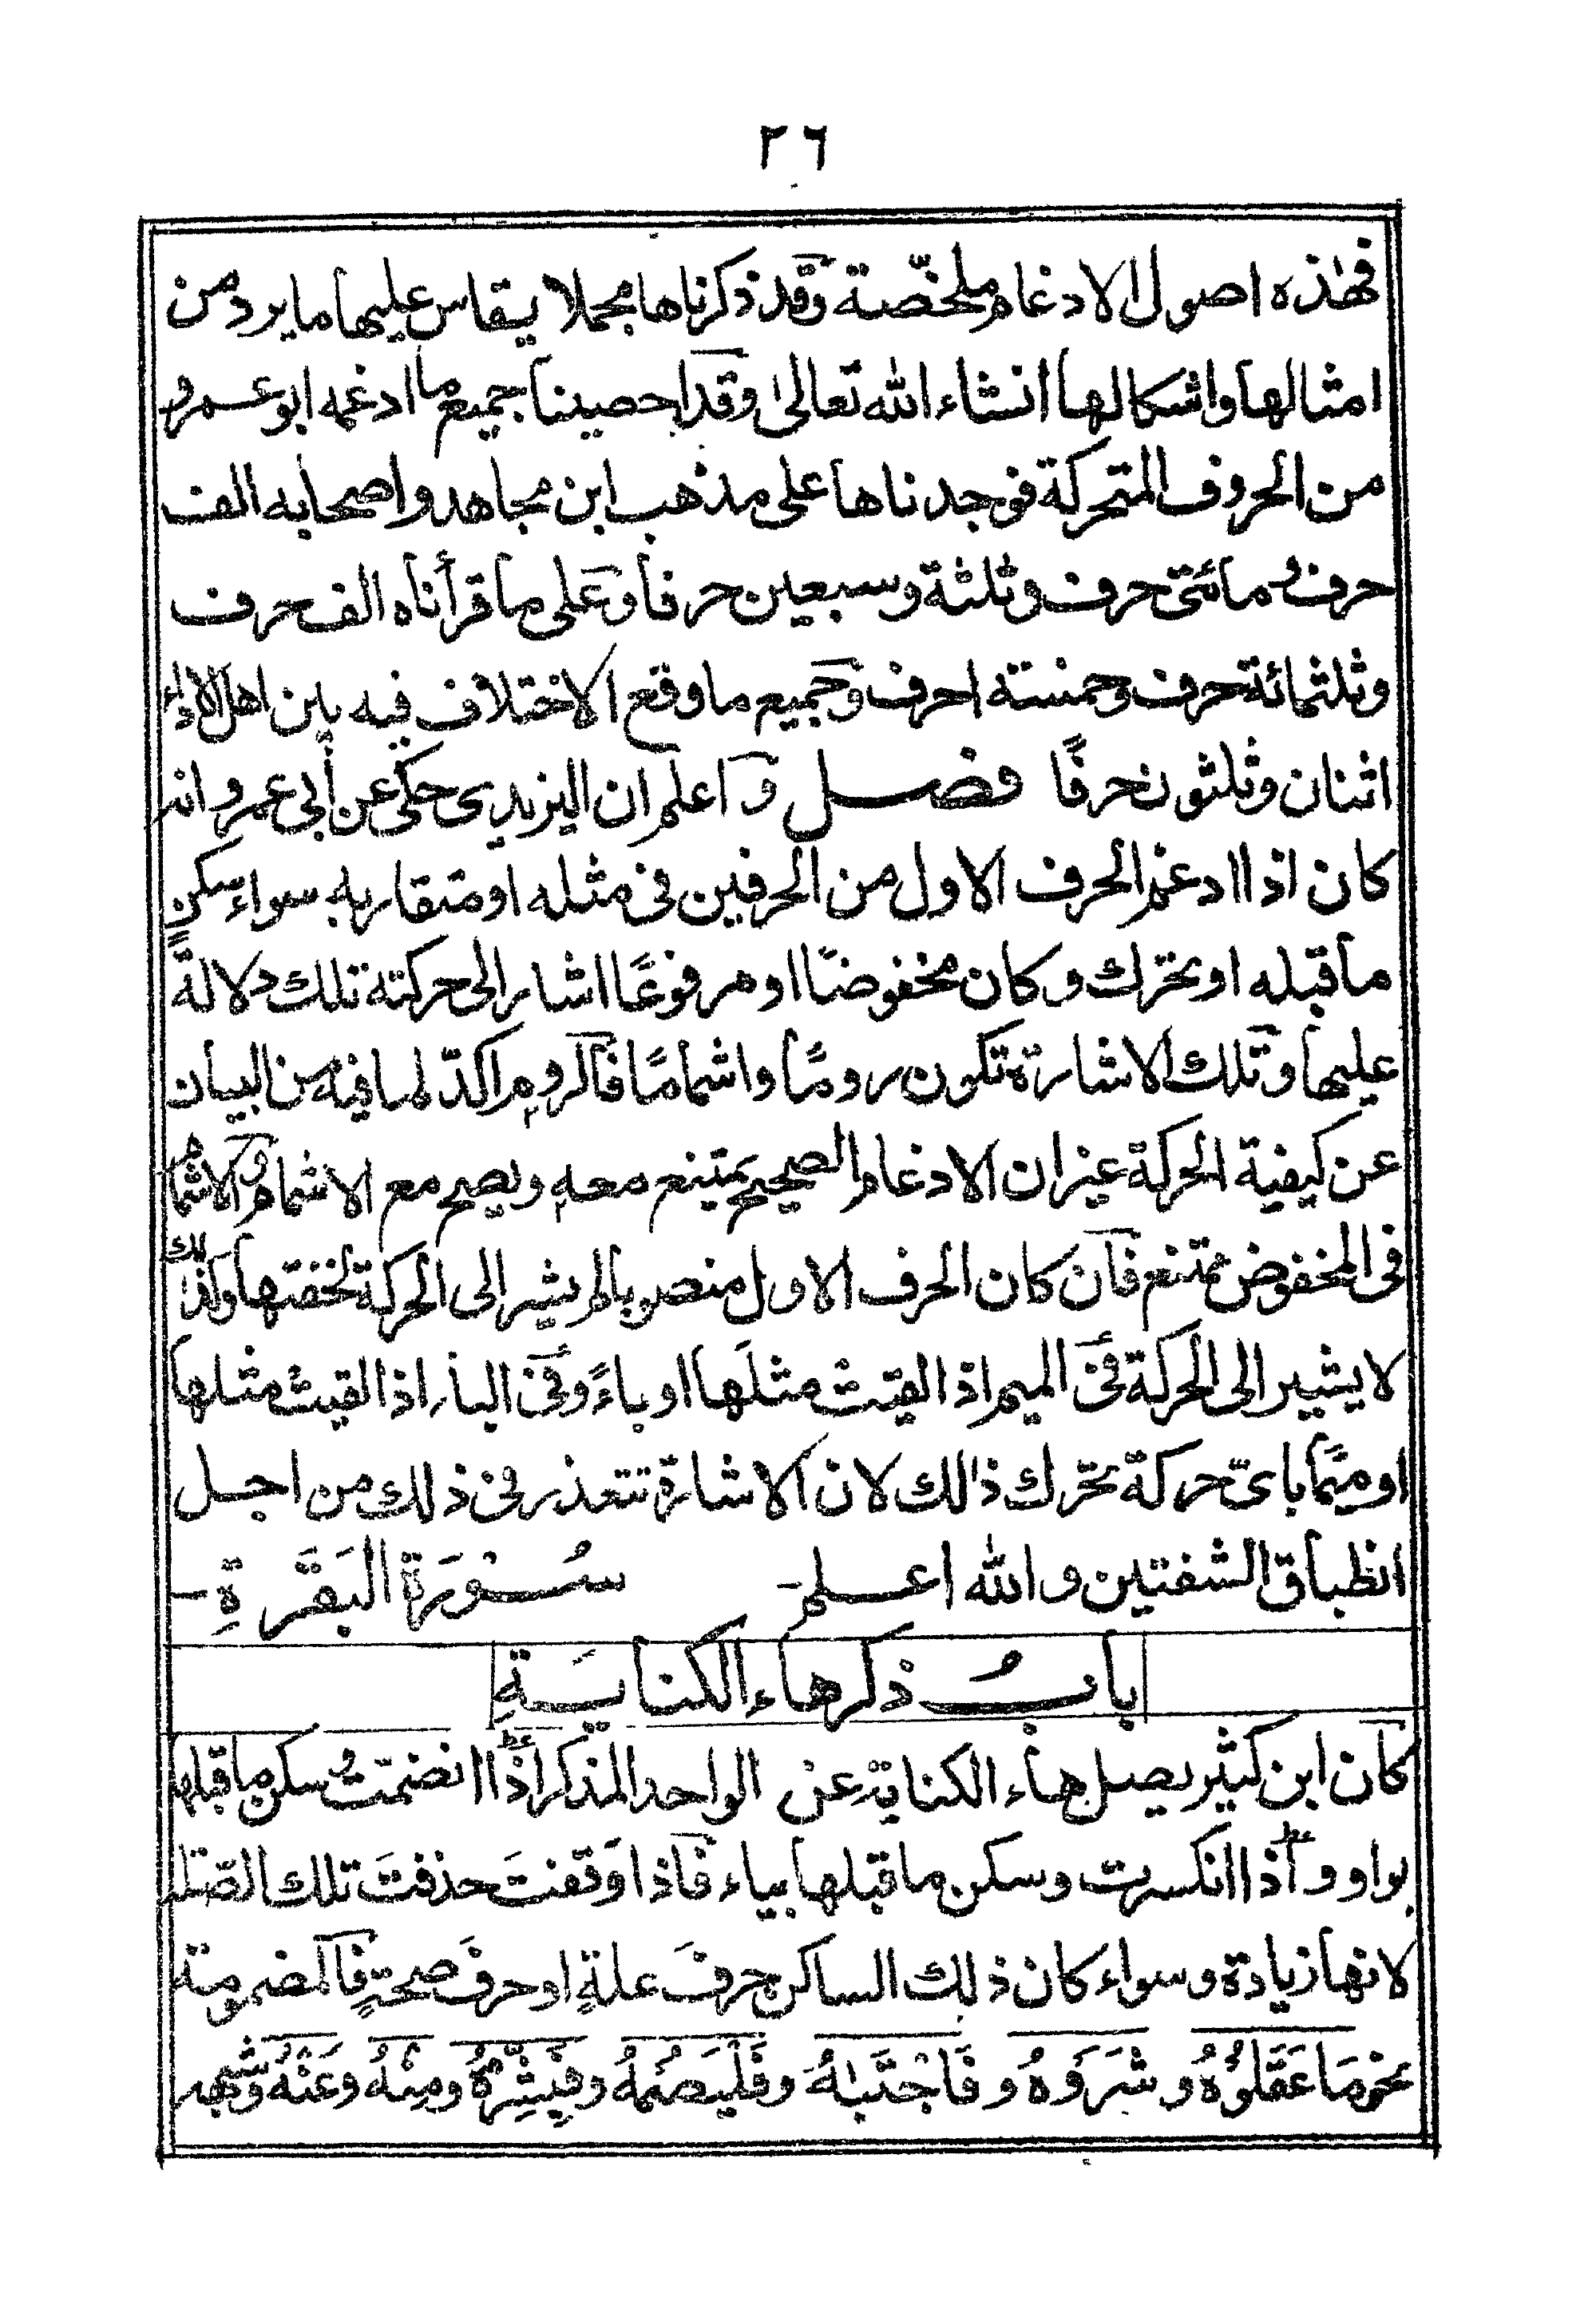 ٢٦
فهٰذه اصول الادغام ملخّصة وقد ذكرناها مجملا يقاس عليها ما يرد من
امثالها واشكالها انشاء الله تعالىٰ وقد احصينا جميع ما ادغمه ابو عمرو
من الحروف المتحركة فوجدناها على مذهب ابن مجاهد واصحابه الف
حرف ومائتى حرف وثلثة وسبعين حرفا وعلى ما قرأناه الف حرف
وثلثمائة حرف وخمسته احرف وجميع ما وقع الاختلاف فيه بين اهل الاداء
اثنان وثلثون حرفًا فصل واعلم ان اليزيدى حكى عن أبى عمرو انه
كان اذا ادغم الحرف الاول من الحرفين فى مثله او متقاربه سواء سكن
ما قبله او تحرك وكان مخفوضًا او مرفوعًا اشار الى حركته تلك دلالةً
عليها وتلك الاشارة تكون رومًا واشمامًا فالروم اكدّ لما فيه من البيان
عن كيفية الحركة غير ان الادغام الصحيح يمتنع معه ويصح مع الاشمام والاشمام
فى المخفوض ممتنع فان كان الحرف الاول منصوبا لم يشر الى الحركة لخفتها وكذلك
لا يشير الى الحركة فى الميم اذ القيت مثلَها او باءً وفى الباء اذا لقيتْ مثلها
او ميمًا باىّ حركة تحرك ذالك لان الاشارة تتعذر فى ذلك من اجل
انظباق الشفتين والله اعلم- سُوْرَةُ البَقَرَةِ -
بابُ ذكر هاء الكنايَةِ
كان ابن كثير يصل هاء الكناية عن الواحد المذكر اذا انضمتْ وسكن ما قبلها
بواو واذا انكسرت وسكن ما قبلها بياء فاذا وَقفتَ حذفتَ تلك الصّلة
لانها زيادة وسواء كان ذلك الساكن حرفَ علةٍ او حرفَ صحةٍ فالمضمومة
نحو مَا عَقَلُوْهُ وشَرَوْهُ وفَاجْتَبٰهُ وفَلْيَصُمْهُ وفَبَشِّرْهُ ومِنْهُ وعَنْهُ وشبهه